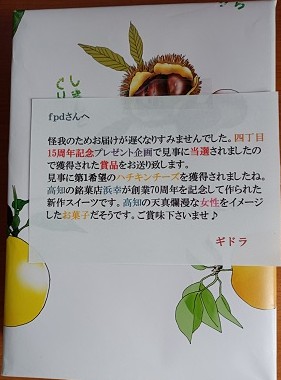 fpdさんへ
怪我のためお届けが遅くなりすみませんでした。四丁目
15周年記念プレゼント企画で見事に当選されましたの
で獲得された賞品をお送り致します。
見事に第1希望のハチキンチーズを獲得されましたね。
高知の銘菓店浜幸が創業70周年を記念して作られた
新作スイーツです。高知の天真爛漫な女性をイメージ
したお菓子だそうです。ご賞味下さいませ♪
ギドラ